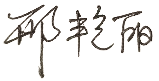 邢艳丽